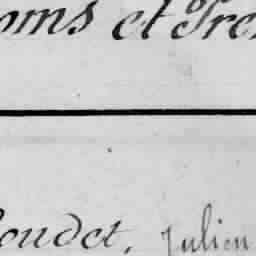 oms et Pren
oudet, Julien